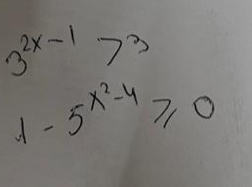 3^{2x-1} > 3
1 - 5^{x^2-4} ⩾ 0